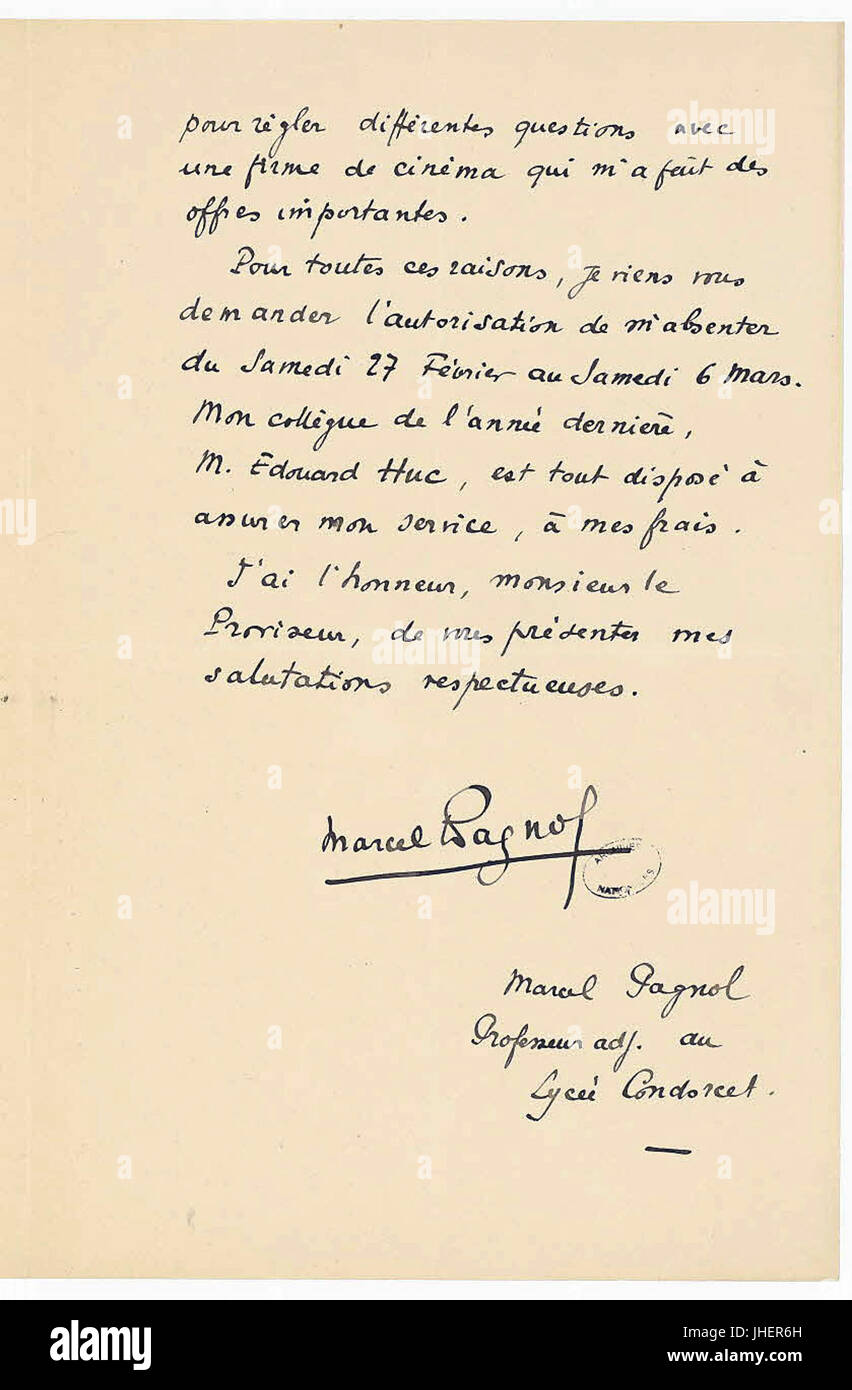 pour règler différentes questions avec
une firme de cinéma qui m'a fait des
offres importantes.
Pour toutes ces raisons, je viens vous
demander l'autorisation de m'absenter
du Samedi 27 Février au Samedi 6 Mars.
Mon collègue de l'année dernière,
M. Edouard Huc, est tout disposé à
assurer mon service, à mes frais.
J'ai l'honneur, monsieur le
Proviseur, de vous présenter mes
salutations respectueuses.
Marcel Pagnol
ARCHIVES
NATIONALES
Marcel Pagnol
Professeur adj. au
Lycée Condorcet.
alamy
Image ID: JHER6H
www.alamy.com